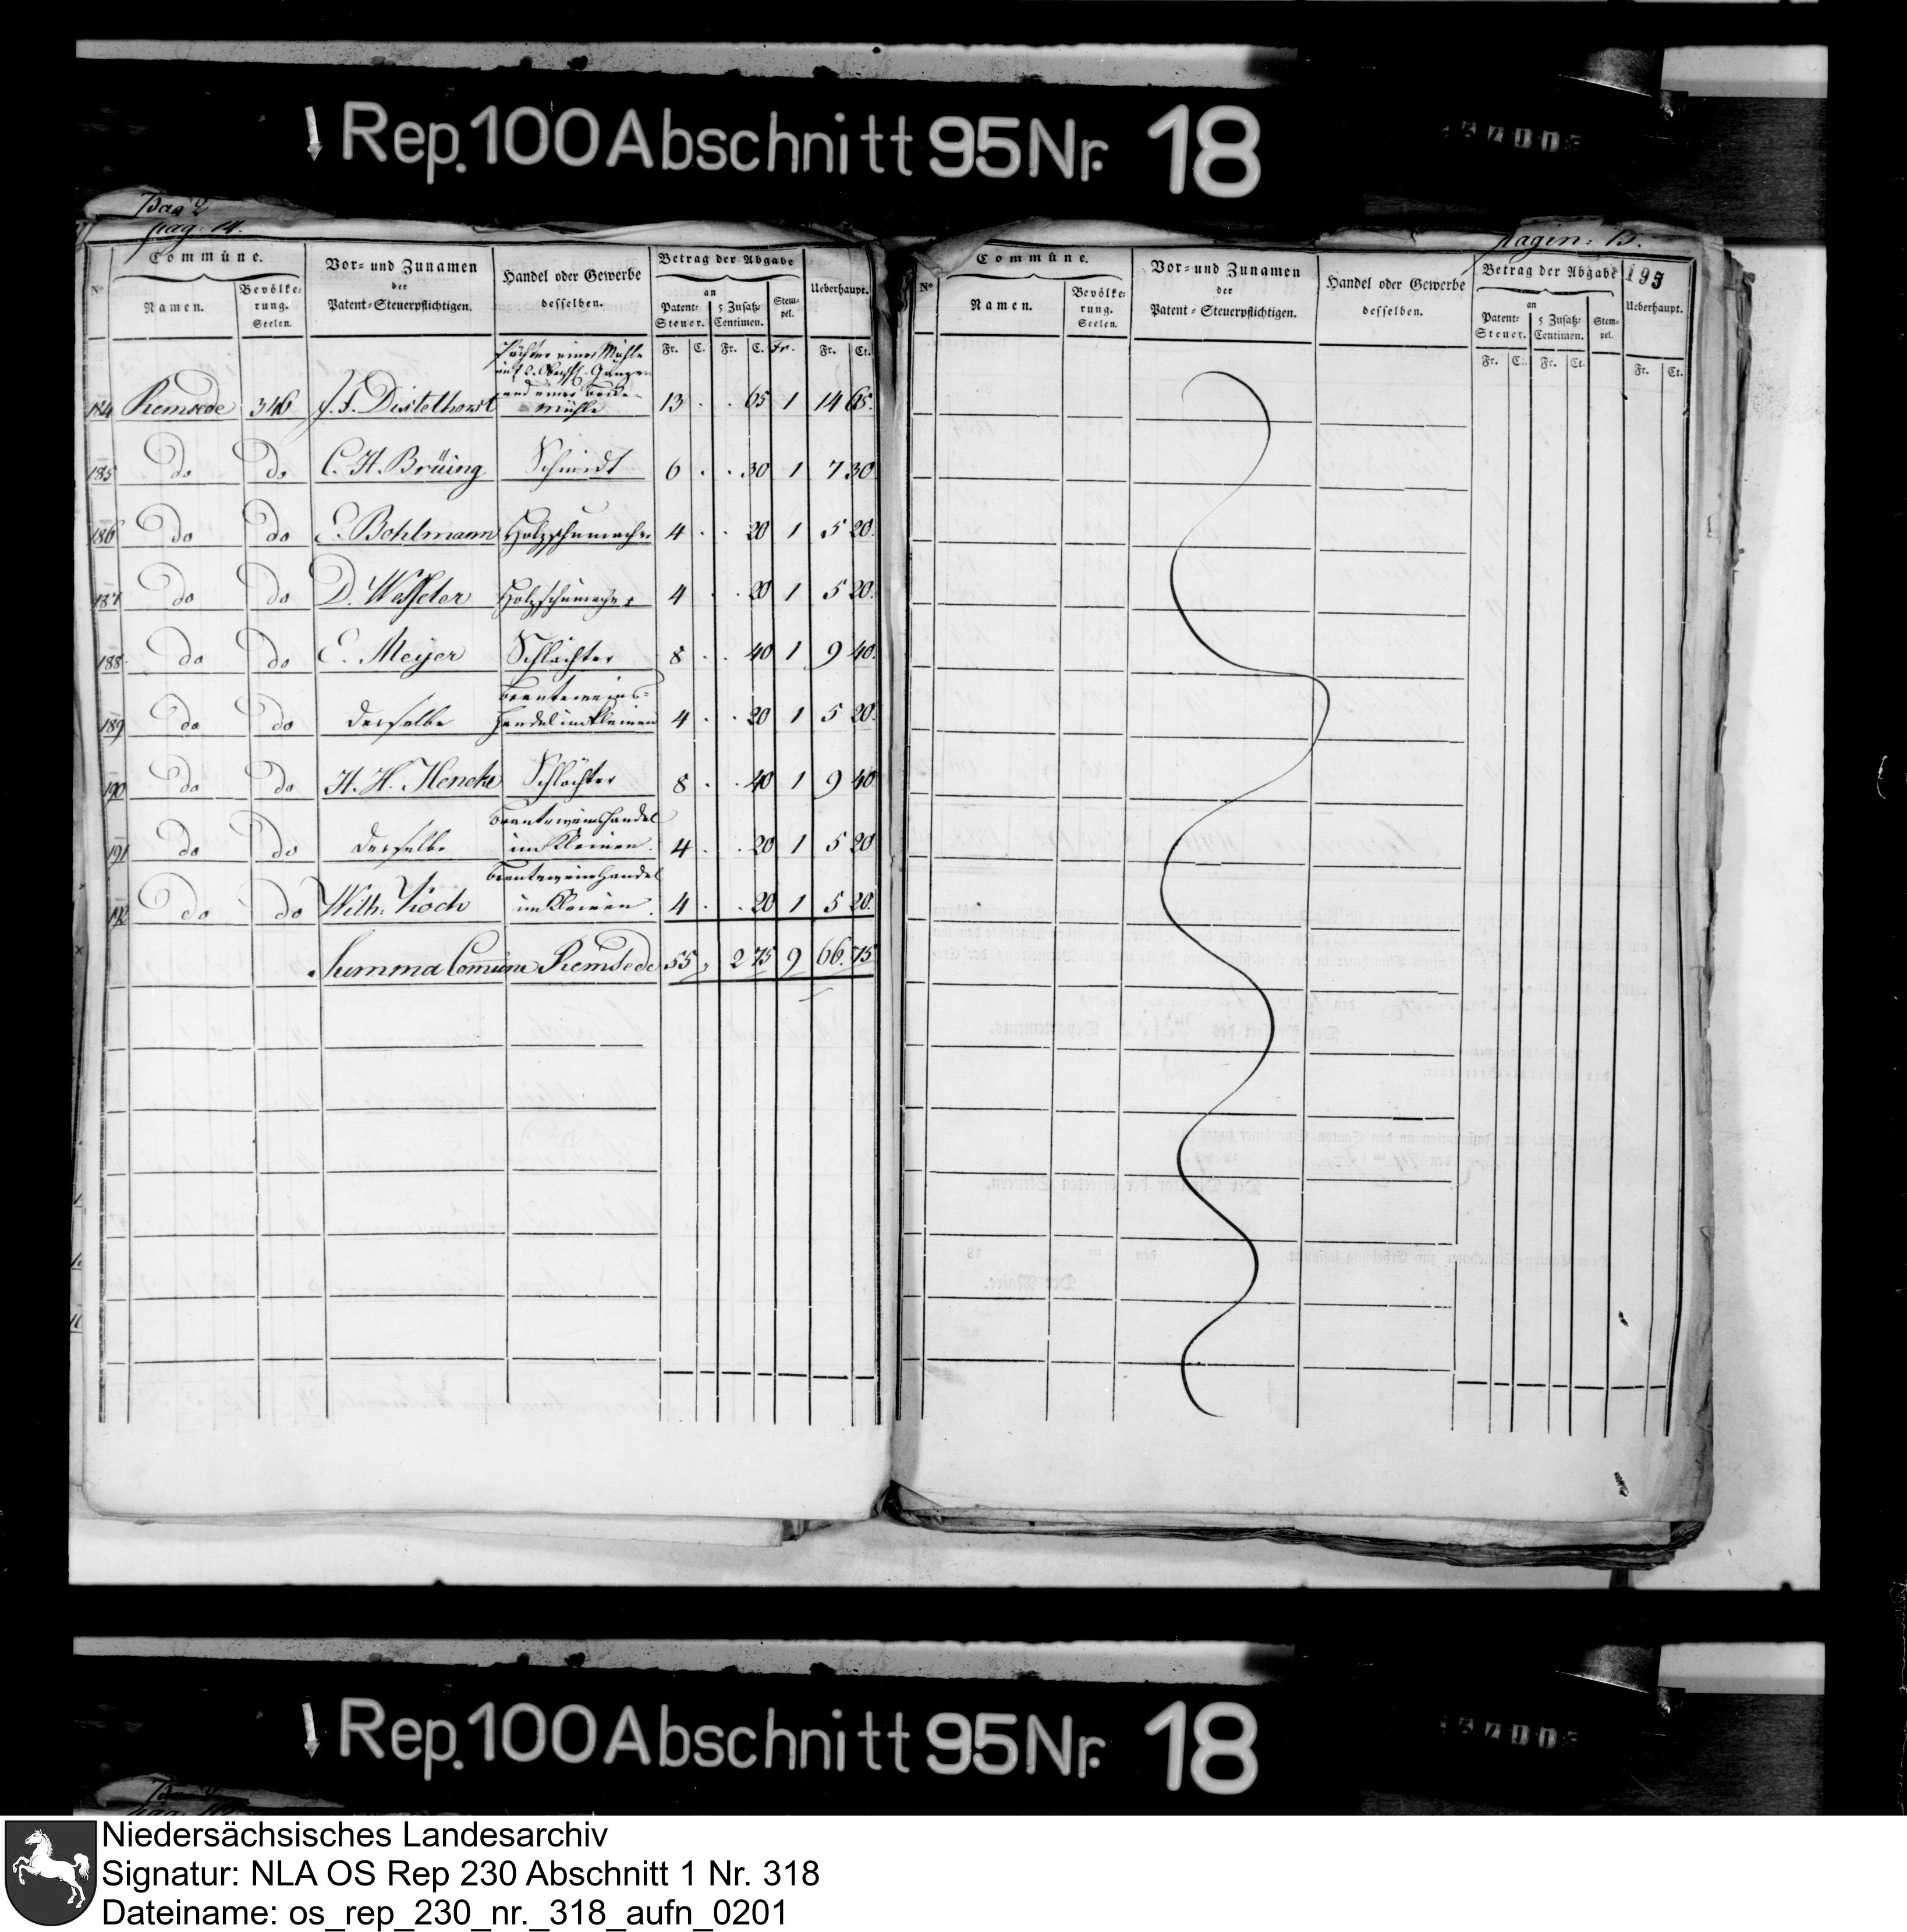 Rep. 100 Abschnitt 95 Nr. 18
Pag 2
pag: 14.
Commüne.
Vor- und Zunamen
der
Patent-Steuerpflichtigen.
Handel oder Gewerbe
desselben.
Betrag der Abgabe
Ueberhaupt.
No
Namen.
Bevölke-
rung.
Seelen.
an
Patent-
Steuer.
5 Zusatz-
Centimen.
Stem-
pel.
Fr. C. Fr. C. Fr. Fr. Ct.
Pächter einer Mühle
und einer
Mühle
184 Remsede 346 J. F. Distelhorst 13 . . 65 1 14 65.
185 do do C. H. Brüing Schmidt 6 . . 30 1 7 30.
186 do do E. Bohlmann Holzschumacher 4 . . 20 1 5 20.
187 do do D. Wesseler Holzschumacher 4 . . 20 1 5 20.
188 do do E. Meyer Schlächter 8 . . 40 1 9 40.
Branteweins-
189 do do derselbe handel im Kleinen 4 . . 20 1 5 20.
190 do do H. H. Hencke Schlächter 8 . . 40 1 9 40
Branteweinshandel
191 do do derselbe im Kleinen. 4 . . 20 1 5 20
Branteweinhandel
192 do do Wilh: Koch im Kleinen. 4 . . 20 1 5 20.
Summa Comüne Remsede 55 , 2 75 9 66. 75
pagin: 15.
193
Commüne.
Vor- und Zunamen
der
Patent-Steuerpflichtigen.
Handel oder Gewerbe
desselben.
Betrag der Abgabe
Ueberhaupt.
No
Namen.
Bevölke-
rung.
Seelen.
an
Patent-
Steuer.
5 Zusatz-
Centimen.
Stem-
pel.
Fr. C. Fr. Ct. Fr. Ct.
Rep. 100 Abschnitt 95 Nr. 18
Niedersächsisches Landesarchiv
Signatur: NLA OS Rep 230 Abschnitt 1 Nr. 318
Dateiname: os_rep_230_nr._318_aufn_0201